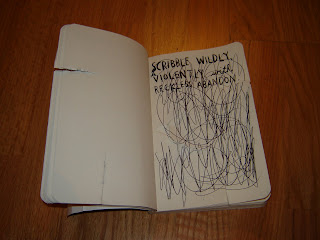 SCRIBBLE WILDLY,
VIOLENTLY with
RECKLESS ABANDON